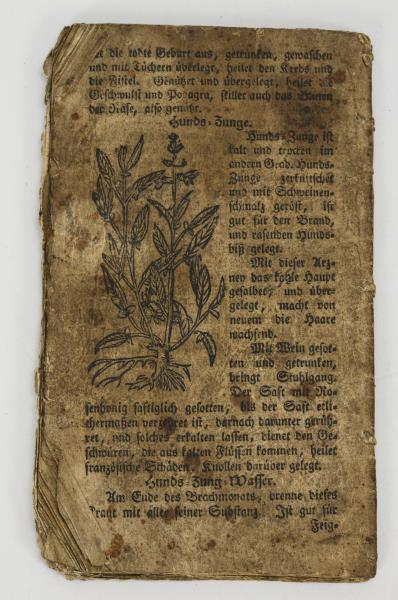 die todte Geburt aus, getrunken, gewaschen
und mit Tüchern übelegt, heilet den Krebs und
die Fistel. Genützet und übergelegt, heilet die
Geschwulst und Podagra, stillet auch das Bluten
der Nase, also genutzt.
Hunds-Zunge.
Hunds-Zunge ist
kalt und trocken im
andern Grad. Hunds-
Zunge zerknitschet
und mit Schweinen-
schmalz geröst, ist
gut für den Brand,
und rasenden Hunds-
biß gelegt.
Mit dieser Arz-
ney das kahle Haupt
gesalbet, und über-
gelegt, macht von
neuem die Haare
wachsend.
Mit Wein gesot-
ten und getrunken,
bringt Stuhlgang.
Der Saft mit Ro-
senhönig gesotten, bis der Saft etli-
chermaßen verzehret ist, darnach darunter gerüh-
ret, und solches erkalten lassen, dienet den Ge-
schwüren, die aus kalten Flüssen kommen, heilet
französische Schäden. Knollen darüber gelegt.
Hunds-Zung-Wasser.
Am Ende des Brachmonats, brenne dieses
Kraut mit aller seiner Substanz. Ist gut für
Feig-